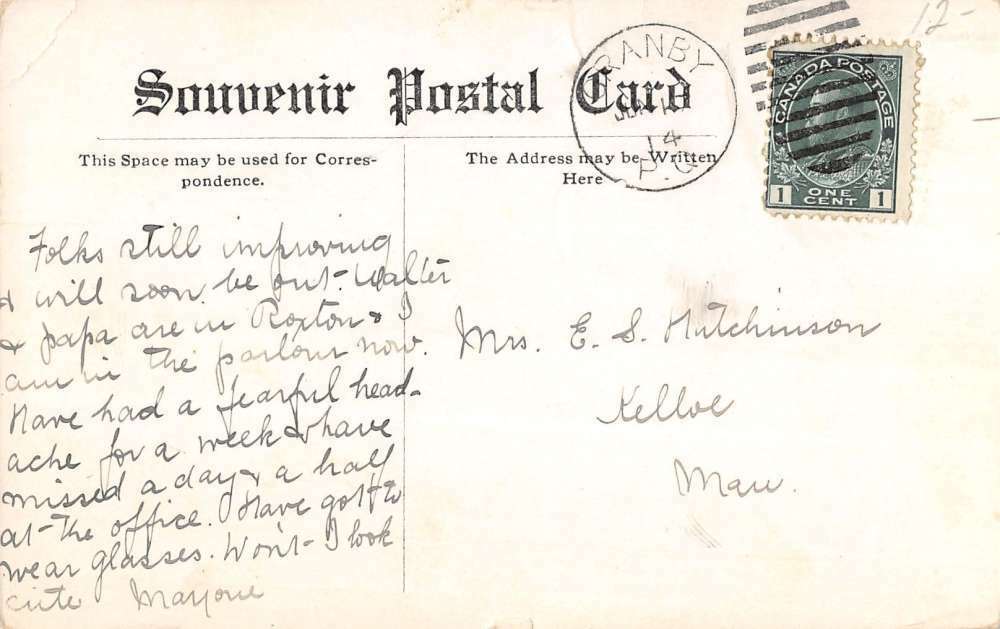 12-
Souvenir Postal Card
RANBY
JUN
14
P.Q
CANADA POSTAGE
1 ONE CENT 1
This Space may be used for Corres-
pondence.
The Address may be Written
Here
Folks still improving
& will soon be out. Walter
& papa are in Roxton & I
am in the parlour now.
Have had a fearful head-
ache for a week & have
missed a day & a half
at the office. Have got to
wear glasses. Won't I look
cute Marjorie
Mrs. E. S. Hutchinson
Kelloe
Man.